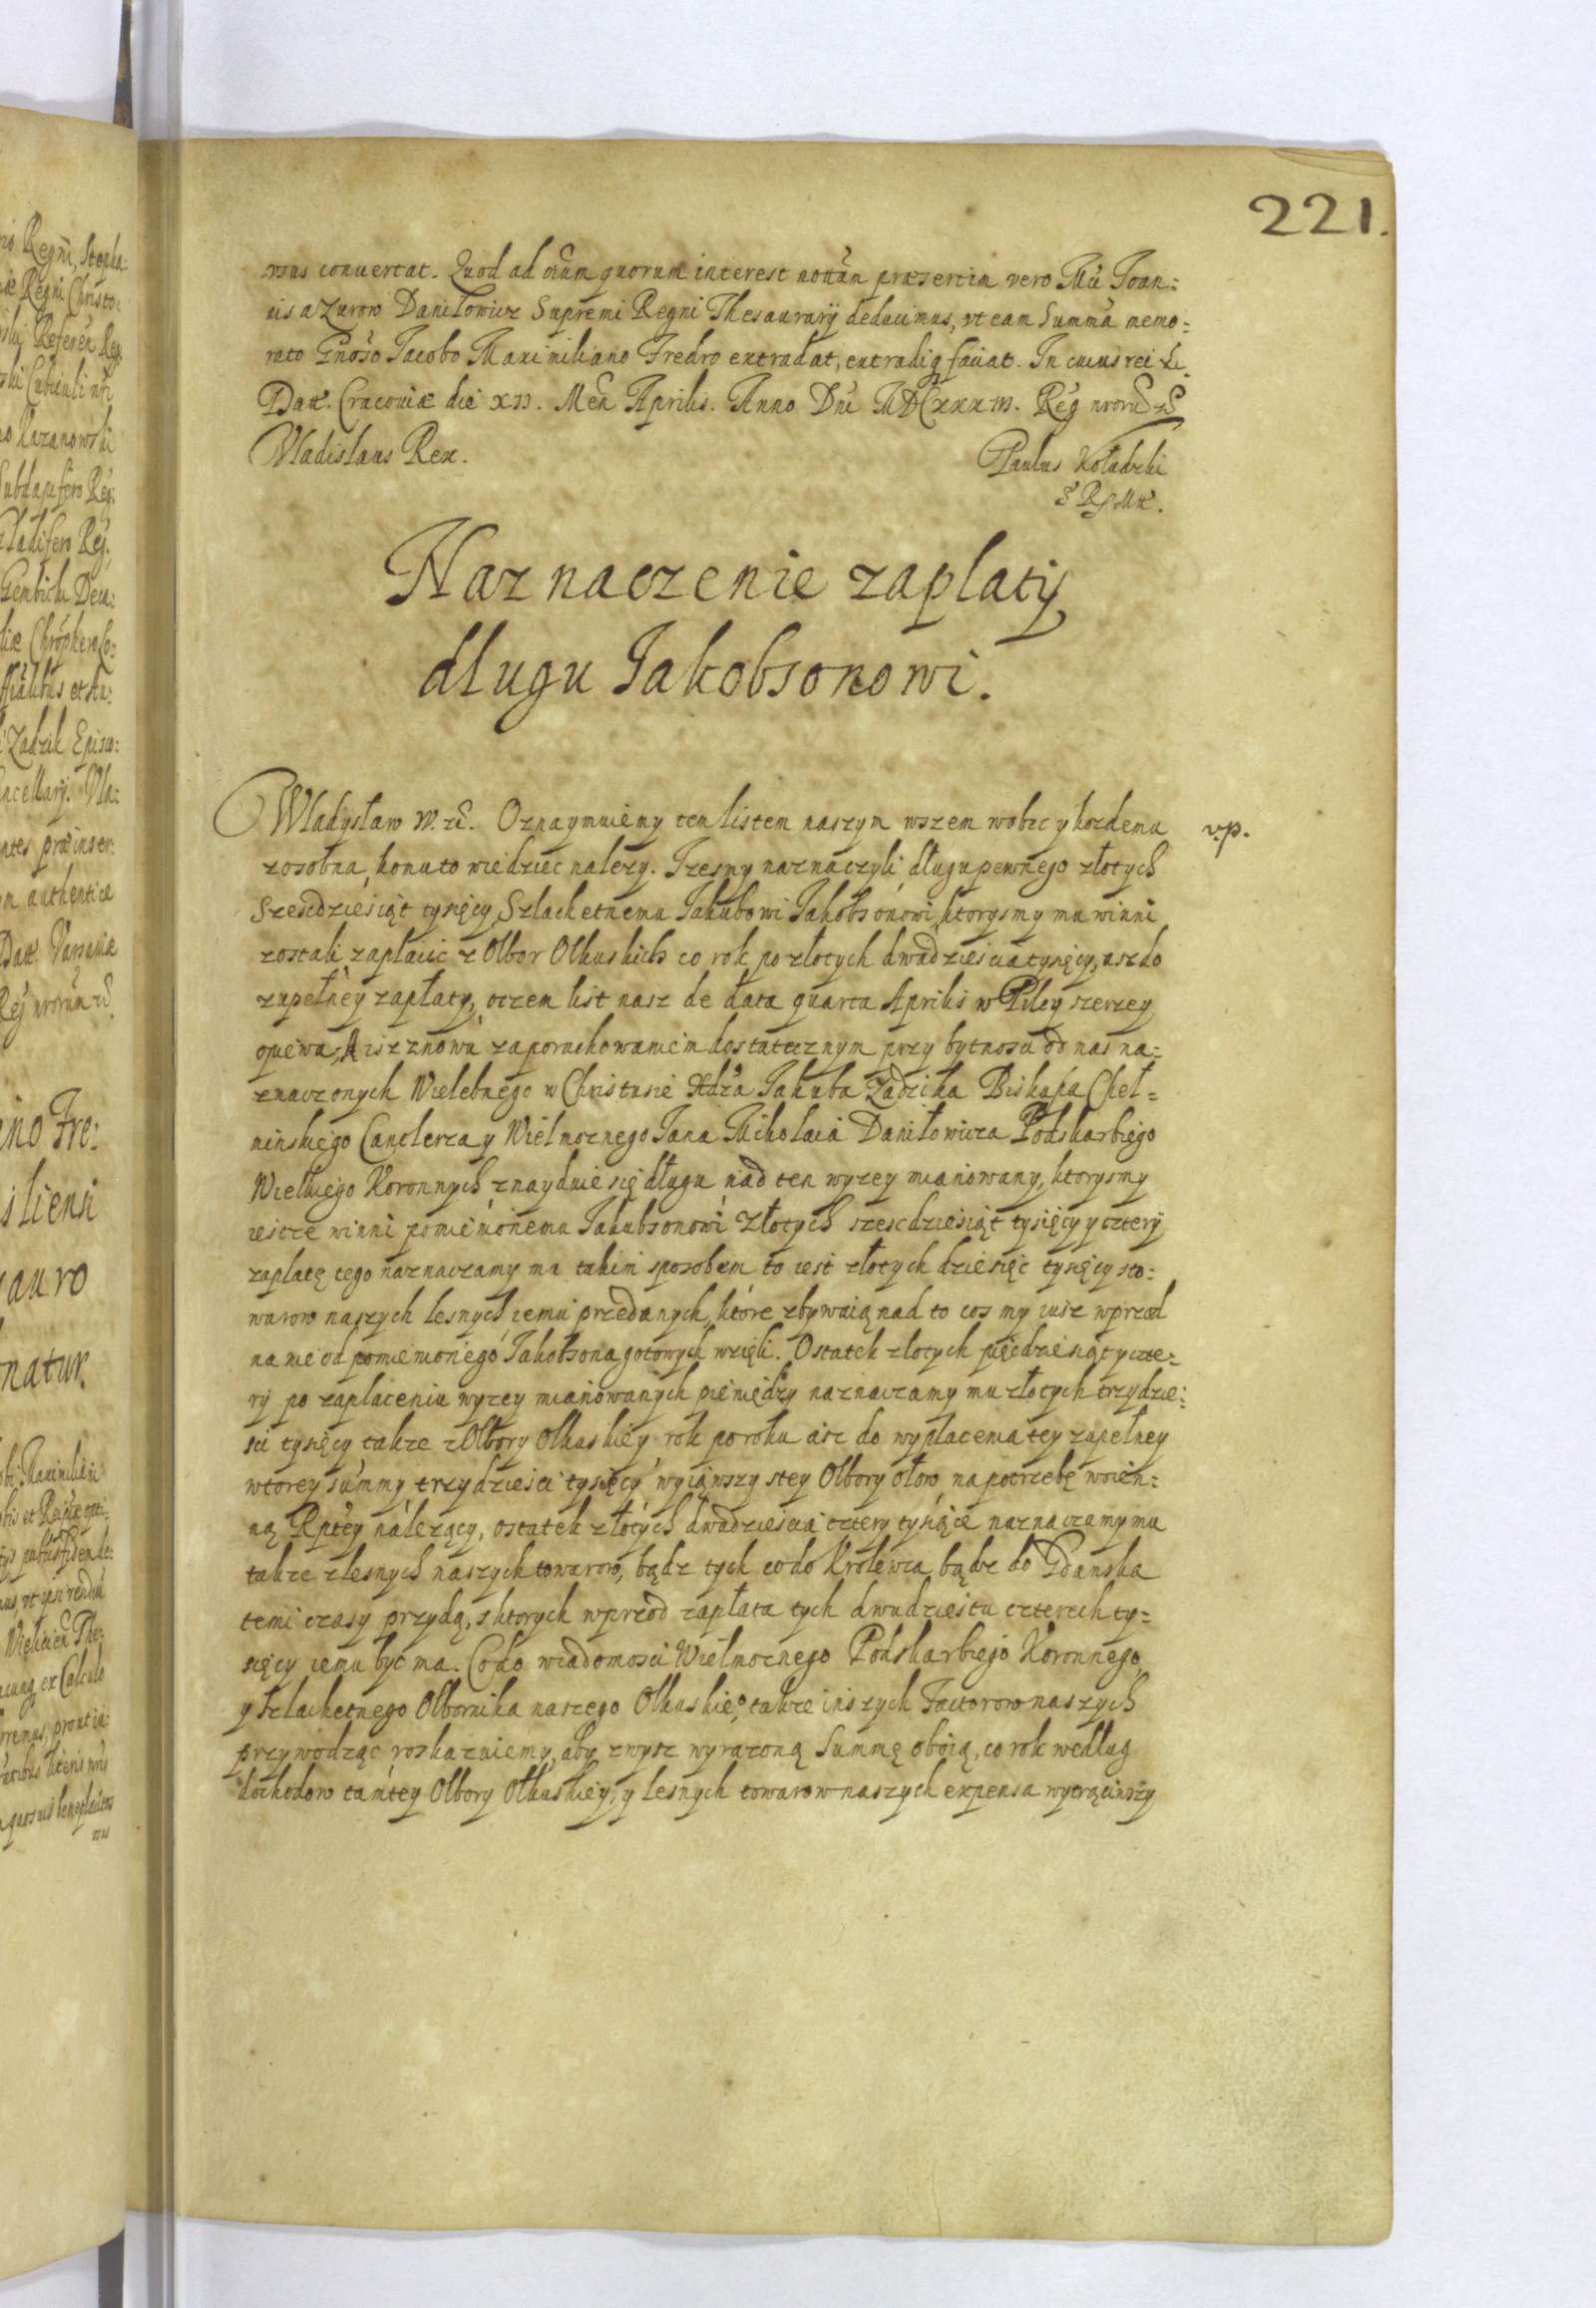 221.
usus conuertat. Quod ad oium quorum interest notiam præsertim vero Mci Ioan:
nis a Zurow Daniłowicz Supremi Regni Thesaurarij deducimus, vt eam Summã memo:
rato Gnoso Iacobo Maximiliano Fredro extradat, extradiq faciat. In cuius rei &c.
Datt. Cracouiæ die XII. Men Aprilis. Anno Dni MDCXXXIII. Reg nrorũ &c
Vladislaus Rex.
Paulus Koładzki
S R Mtt.
Naznaczenie zaplaty
dlugu Jakobsonowi.
Władysław IV. &c. Oznaymuiemy tem listem naszym wszem wobec y kozdemu
zosobna, komu to wiedziec nalezy. Izesmy naznaczyli długu pewnego złotych
Szescdziesiąt tysięcy Szlachetnemu Jakubowi Jakobsonowi, ktorysmy mu winni
zostali zapłacic z Olbor Olkuskich co rok po złotych dwadziescia tysięcy, asz do
zupełney zapłaty, oczem list nasz de data quarta Aprilis w Pilcy szerzey
opiewa, A isz znowu za porachowaniem dostatecznym przy bytnosci od nas na:
znaczonych Wielebnego w Christusie Xdza Jakuba Zadzika Biskupa Cheł=
minskiego Canclerza y Wielmoznego Jana Mikołaia Daniłowicza Podskarbiego
Wielkiego Koronnych, znayduie się długu nad ten wyzey mianowany, ktorysmy
iescze winni pomienionemu Jakubsonowi Złotych szescdziesiąt tysięcy y cztery
zaplatę tego naznaczamy mu takim sposobem to iest złotych dziesięc tysięcy sto:
warow naszych lesnych iemu przedanych, które zbywaią nad to cos my iusz wprzod
na nie od pomienionego Jakobsona gotowych wzięli. Ostatek złotych pięcdziesiąt y czte:
ry po zaplaceniu wyzey mianowanych pieniędzy naznaczamy mu złotych trzydzie:
sci tysięcy takze z Olbory Olkuskiey rok po roku asz do wypłacenia tey zupełney
wtorey summy trzydziesci tysięcy wyiąwszy stey Olbory ołow, na potrzebę woien:
ną Rptey nálezący, ostatek złotych dwadziescia cztery tysiące naznaczamy mu
takze z lesnych naszych towarow, bądz tych co do Krolewca bądz do Gdanska
temi czasy przydą, z ktorych wprzod zapłata tych dwudziestu czterech ty=
sięcy iemu być ma. Co do wiadomosci Wielmoznego Podskarbiego Koronnego
y Szlachetnego Olbornika naszego Olkuskieo, takze inszych Factorow naszych
przywodząc roskazuiemy, aby zwysz wyrazoną Summę oboią, co rok według
dochodow tamtey Olbory Olkuskiey, y lesnych towarow naszych expensa wytrąciwszy
vp.